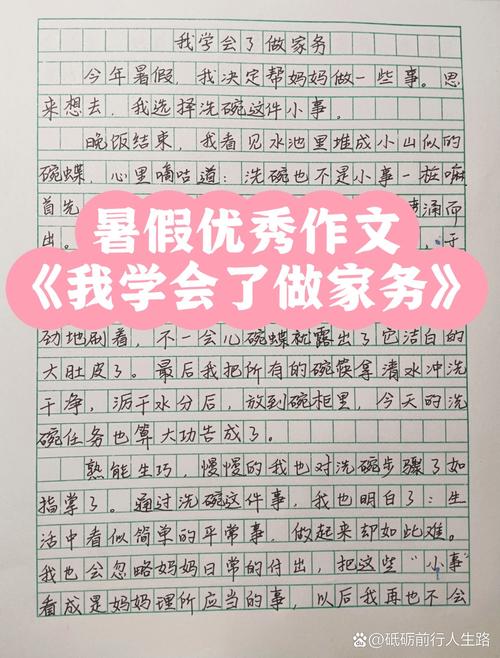 我学会了做家务
今年暑假，我决定帮妈妈做一些事。思
来想去，我选择洗碗这件小事。
晚饭结束，我看见水池里堆成小山似的
碗蝶，心里嘀咕道：洗碗也不是小事一桩嘛
首先 涌而
出。 于
暑假优秀作文
《我学会了做家务》
劲地刷着，不一会儿碗蝶就露出了它洁白的
大肚皮了。最后我把所有的碗筷拿清水冲洗
干净，沥干水分后，放到碗柜里，今天的洗
碗任务也算大功告成了。
熟能生巧，慢慢的我也对洗碗步骤了如
指掌了。通过洗碗这件事，我也明白了：生
活中看似简单的平常事，做起来却如此难。
我也会忽略妈妈日常的付出，把这些“小事”
看成是妈妈理所应当的事，以后我再也不会
@砥砺前行人生路